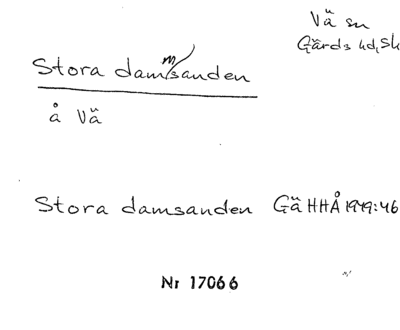 Vä sn
Gärds hd, Sk
Stora dammsanden
å Vä
Stora damsanden GäHHÅ 1949:46
Nr 17066